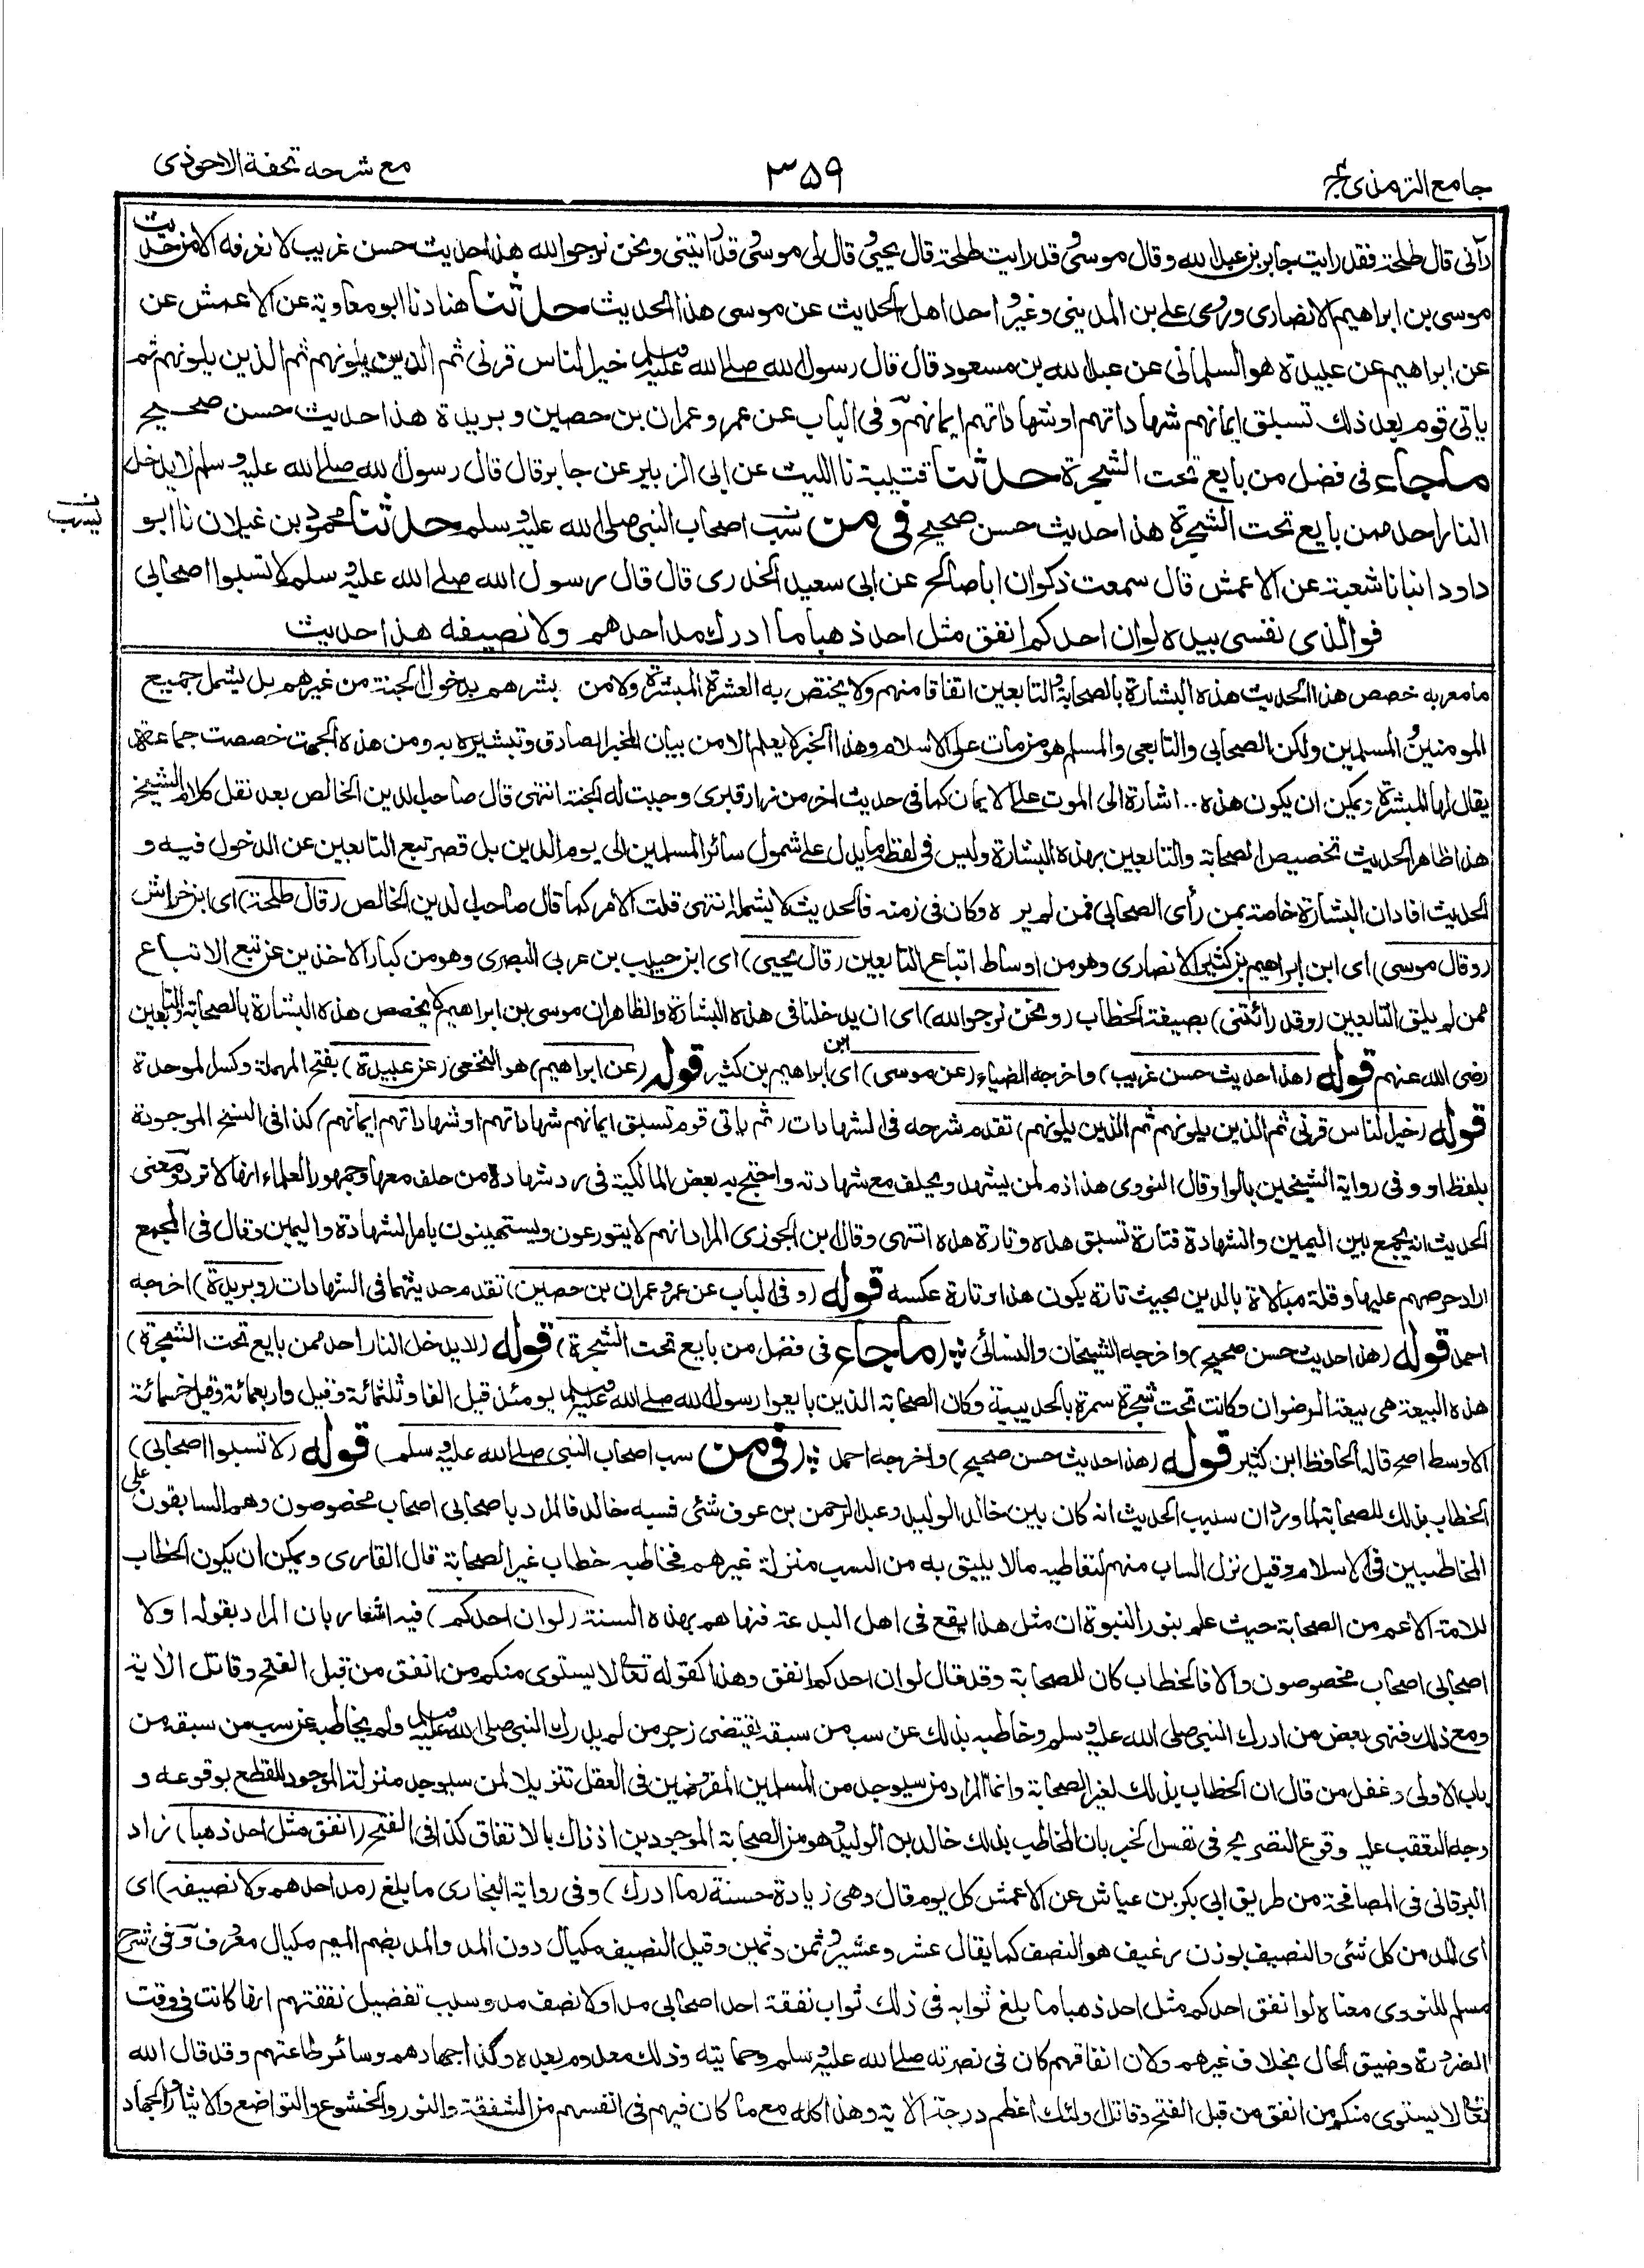 جامع الترمذي ج۴
۳۵۹
مع شرحه تحفة الاحوذى
رآنى قال طلحة فقد رايت جابر بن عبد الله وقال موسى وقد رايت طلحة قال يحيى وقال لى موسى وقد رأيتنى ونحن نرجو الله هذا حديث حسن غريب لا نعرفه الا من حديث
موسى بن ابراهيم الانصارى وروى على بن المدينى وغير واحد من اهل الحديث عن موسى هذا الحديث حدثنا هناد نا ابو معاوية عن الاعمش عن
عن ابراهيم عن عبيدة هو السلمانى عن عبد الله بن مسعود قال قال رسول الله صلى الله عليه وسلم خير الناس قرنى ثم الذين يلونهم ثم الذين يلونهم ثم
ياتى قوم بعد ذلك تسبق ايمانهم شهاداتهم او شهاداتهم ايمانهم وفى الباب عن عمر وعمران بن حصين وبريدة هذا حديث حسن صحيح
ما جاء فى فضل من بايع تحت الشجرة حدثنا قتيبة نا الليث عن ابى الزبير عن جابر قال قال رسول الله صلى الله عليه وسلم لا يدخل
النار احد ممن بايع تحت الشجرة هذا حديث حسن صحيح فى من سب اصحاب النبى صلى الله عليه وسلم حدثنا محمود بن غيلان نا ابو
داود انبانا شعبة عن الاعمش قال سمعت ذكوان ابا صالح عن ابى سعيد الخدرى قال قال رسول الله صلى الله عليه وسلم لا تسبوا اصحابى
فوالذى نفسى بيده لو ان احدكم انفق مثل احد ذهبا ما ادرك مد احدهم ولا نصيفه هذا حديث
ما معربه خصص هذا الحديث هذه البشارة بالصحابة والتابعين اتفاقا منهم ولا يختص به العشرة المبشرة ولا من بشرهم بدخول الجنة من غيرهم بل يشمل جميع
المومنين والمسلمين ولكن الصحابى والتابعى والمسلم هو من مات على الاسلام وهذا الخبر لا يعلم الا من بيان المخبر الصادق وتبشيره به ومن هذه الجهة خصصت جماعة
يقال لها المبشرة ويمكن ان يكون هذه .. اشارة الى الموت على الايمان كما فى حديث اخر من زار قبرى وجبت له الجنة انتهى قال صاحب الدين الخالص بعد نقل كلام الشيخ
هذا ظاهر الحديث تخصيص الصحابة والتابعين بهذه البشارة وليس فى لفظه ما يدل على شمول سائر المسلمين الى يوم الدين بل قصر تبع التابعين عن الدخول فيه و
الحديث افاد ان البشارة خاصة بمن رأى الصحابى فمن لم يره وكان فى زمنه فالحديث لا يشمله انتهى قلت الأمر كما قال صاحب الدين الخالص (قال طلحة) اى ابن خراش
(وقال موسى) اى ابن ابراهيم بن كثير الانصارى وهو من اوساط اتباع التابعين (قال يحيى) اى ابن حبيب بن عربى البصرى وهو من كبار الاخذين عن تبع الاتباع
ممن لم يلق التابعين (وقد رائتنى) بصيغة الخطاب (ونحن نرجو الله) اى ان يدخلنا فى هذه البشارة والظاهر ان موسى بن ابراهيم لا يخصص هذه البشارة بالصحابة والتابعين
رضى الله عنهم قوله (هذا حديث حسن غريب) واخرجه الضياء (عن موسى) اى ابن ابراهيم بن كثير قوله (عن ابراهيم) هو النخعى (عن عبيدة) بفتح المهملة وكسر الموحدة
قوله (خير الناس قرنى ثم الذين يلونهم ثم الذين يلونهم) تقدم شرحه فى الشهادات (ثم ياتى قوم تسبق ايمانهم شهاداتهم او شهاداتهم ايمانهم) كذا فى النسخ الموجودة
بلفظ او وفى رواية الشيخين بالواو قال النووى هذا ذم لمن يشهد ويحلف مع شهادته واحتج به بعض المالكية فى رد شهادة من حلف معها وجمهور العلماء انها لا ترد ومعنى
الحديث انه يجمع بين اليمين والشهادة فتارة تسبق هذه وتارة هذه انتهى وقال ابن الجوزى المراد انهم لا يتورعون ويستهينون بامر الشهادة واليمين وقال فى المجمع
اراد حرصهم عليها وقلة مبالاة بالدين بحيث تارة يكون هذا وتارة عكسه قوله (وفى الباب عن عمر وعمران بن حصين) تقدم حديثهما فى الشهادات (وبريدة) اخرجه
احمد قوله (هذا حديث حسن صحيح) واخرجه الشيخان والنسائى (ما جاء فى فضل من بايع تحت الشجرة) قوله (لا يدخل النار احد ممن بايع تحت الشجرة)
هذه البيعة هى بيعة الرضوان وكانت تحت شجرة سمرة بالحديبية وكان الصحابة الذين بايعوا رسول الله صلى الله عليه وسلم يومئذ قيل الفا وثلثمائة وقيل واربعمائة وقيل خمسمائة
الاوسط اصح قاله الحافظ ابن كثير قوله (هذا حديث حسن صحيح) واخرجه احمد (فى من سب اصحاب النبى صلى الله عليه وسلم) قوله (لا تسبوا اصحابى)
الخطاب بذلك للصحابة لما ورد ان سبب الحديث انه كان بين خالد بن الوليد وعبد الرحمن بن عوف شئ فسبه خالد فالمراد باصحابى اصحاب مخصوصون وهم السابقون على
المخاطبين فى الاسلام وقيل نزل الساب منهم لتعاطيه ما لا يليق به من السب منزلة غيرهم فخاطبه خطاب غير الصحابة قال القارى ويمكن ان يكون الخطاب
للامة الاعم من الصحابة حيث علم بنور النبوة ان مثل هذا يقع فى اهل البدعة فنهاهم بهذه السنة (لو ان احدكم) فيه اشعار بان المراد بقوله اولا
اصحابى اصحاب مخصوصون والا فالخطاب كان للصحابة وقد قال لو ان احدكم انفق وهذا كقوله تعالى لا يستوى منكم من انفق من قبل الفتح وقاتل الاية
ومع ذلك فنهى بعض من ادرك النبى صلى الله عليه وسلم وخاطبه بذلك عن سب من سبقه يقتضى زجر من لم يدرك النبى صلى الله عليه وسلم ولم يخاطبه عن سب من سبقه من
باب الاولى وغفل من قال ان الخطاب بذلك لغير الصحابة وانما المراد من سيوجد من المسلمين المفروضين فى العقل تنزيلا لمن سيوجد منزلة الموجود للقطع بوقوعه و
وجه التعقب عليه وقوع التصريح فى نفس الخبر بان المخاطب بذلك خالد بن الوليد وهو من الصحابة الموجودين اذ ذاك بالاتفاق كذا فى الفتح (انفق مثل احد ذهبا) زاد
البرقانى فى المصافحة من طريق ابى بكر بن عياش عن الاعمش كل يوم قال وهى زيادة حسنة (ما ادرك) وفى رواية البخارى ما بلغ (مد احدهم ولا نصيفه) اى
اى المد من كل شئ والنصيف بوزن رغيف هو النصف كما يقال عشر وعشير وثمن وثمين وقيل النصيف مكيال دون المد والمد بضم الميم مكيال معروف وفى شرح
مسلم للنووى معناه لو انفق احدكم مثل احد ذهبا ما بلغ ثوابه فى ذلك ثواب نفقة احد اصحابى مدا ولا نصف مد وسبب تفضيل نفقتهم انها كانت فى وقت
الضرورة وضيق الحال بخلاف غيرهم ولان انفاقهم كان فى نصرته صلى الله عليه وسلم وحمايته وذلك معدوم بعده وكذا جهادهم وسائر طاعتهم وقد قال الله
تعالى لا يستوى منكم من انفق من قبل الفتح وقاتل اولئك اعظم درجة الاية وهذا كله مع ما كان فيهم فى انفسهم من الشفقة والنور والخشوع والتواضع والايثار والجهاد